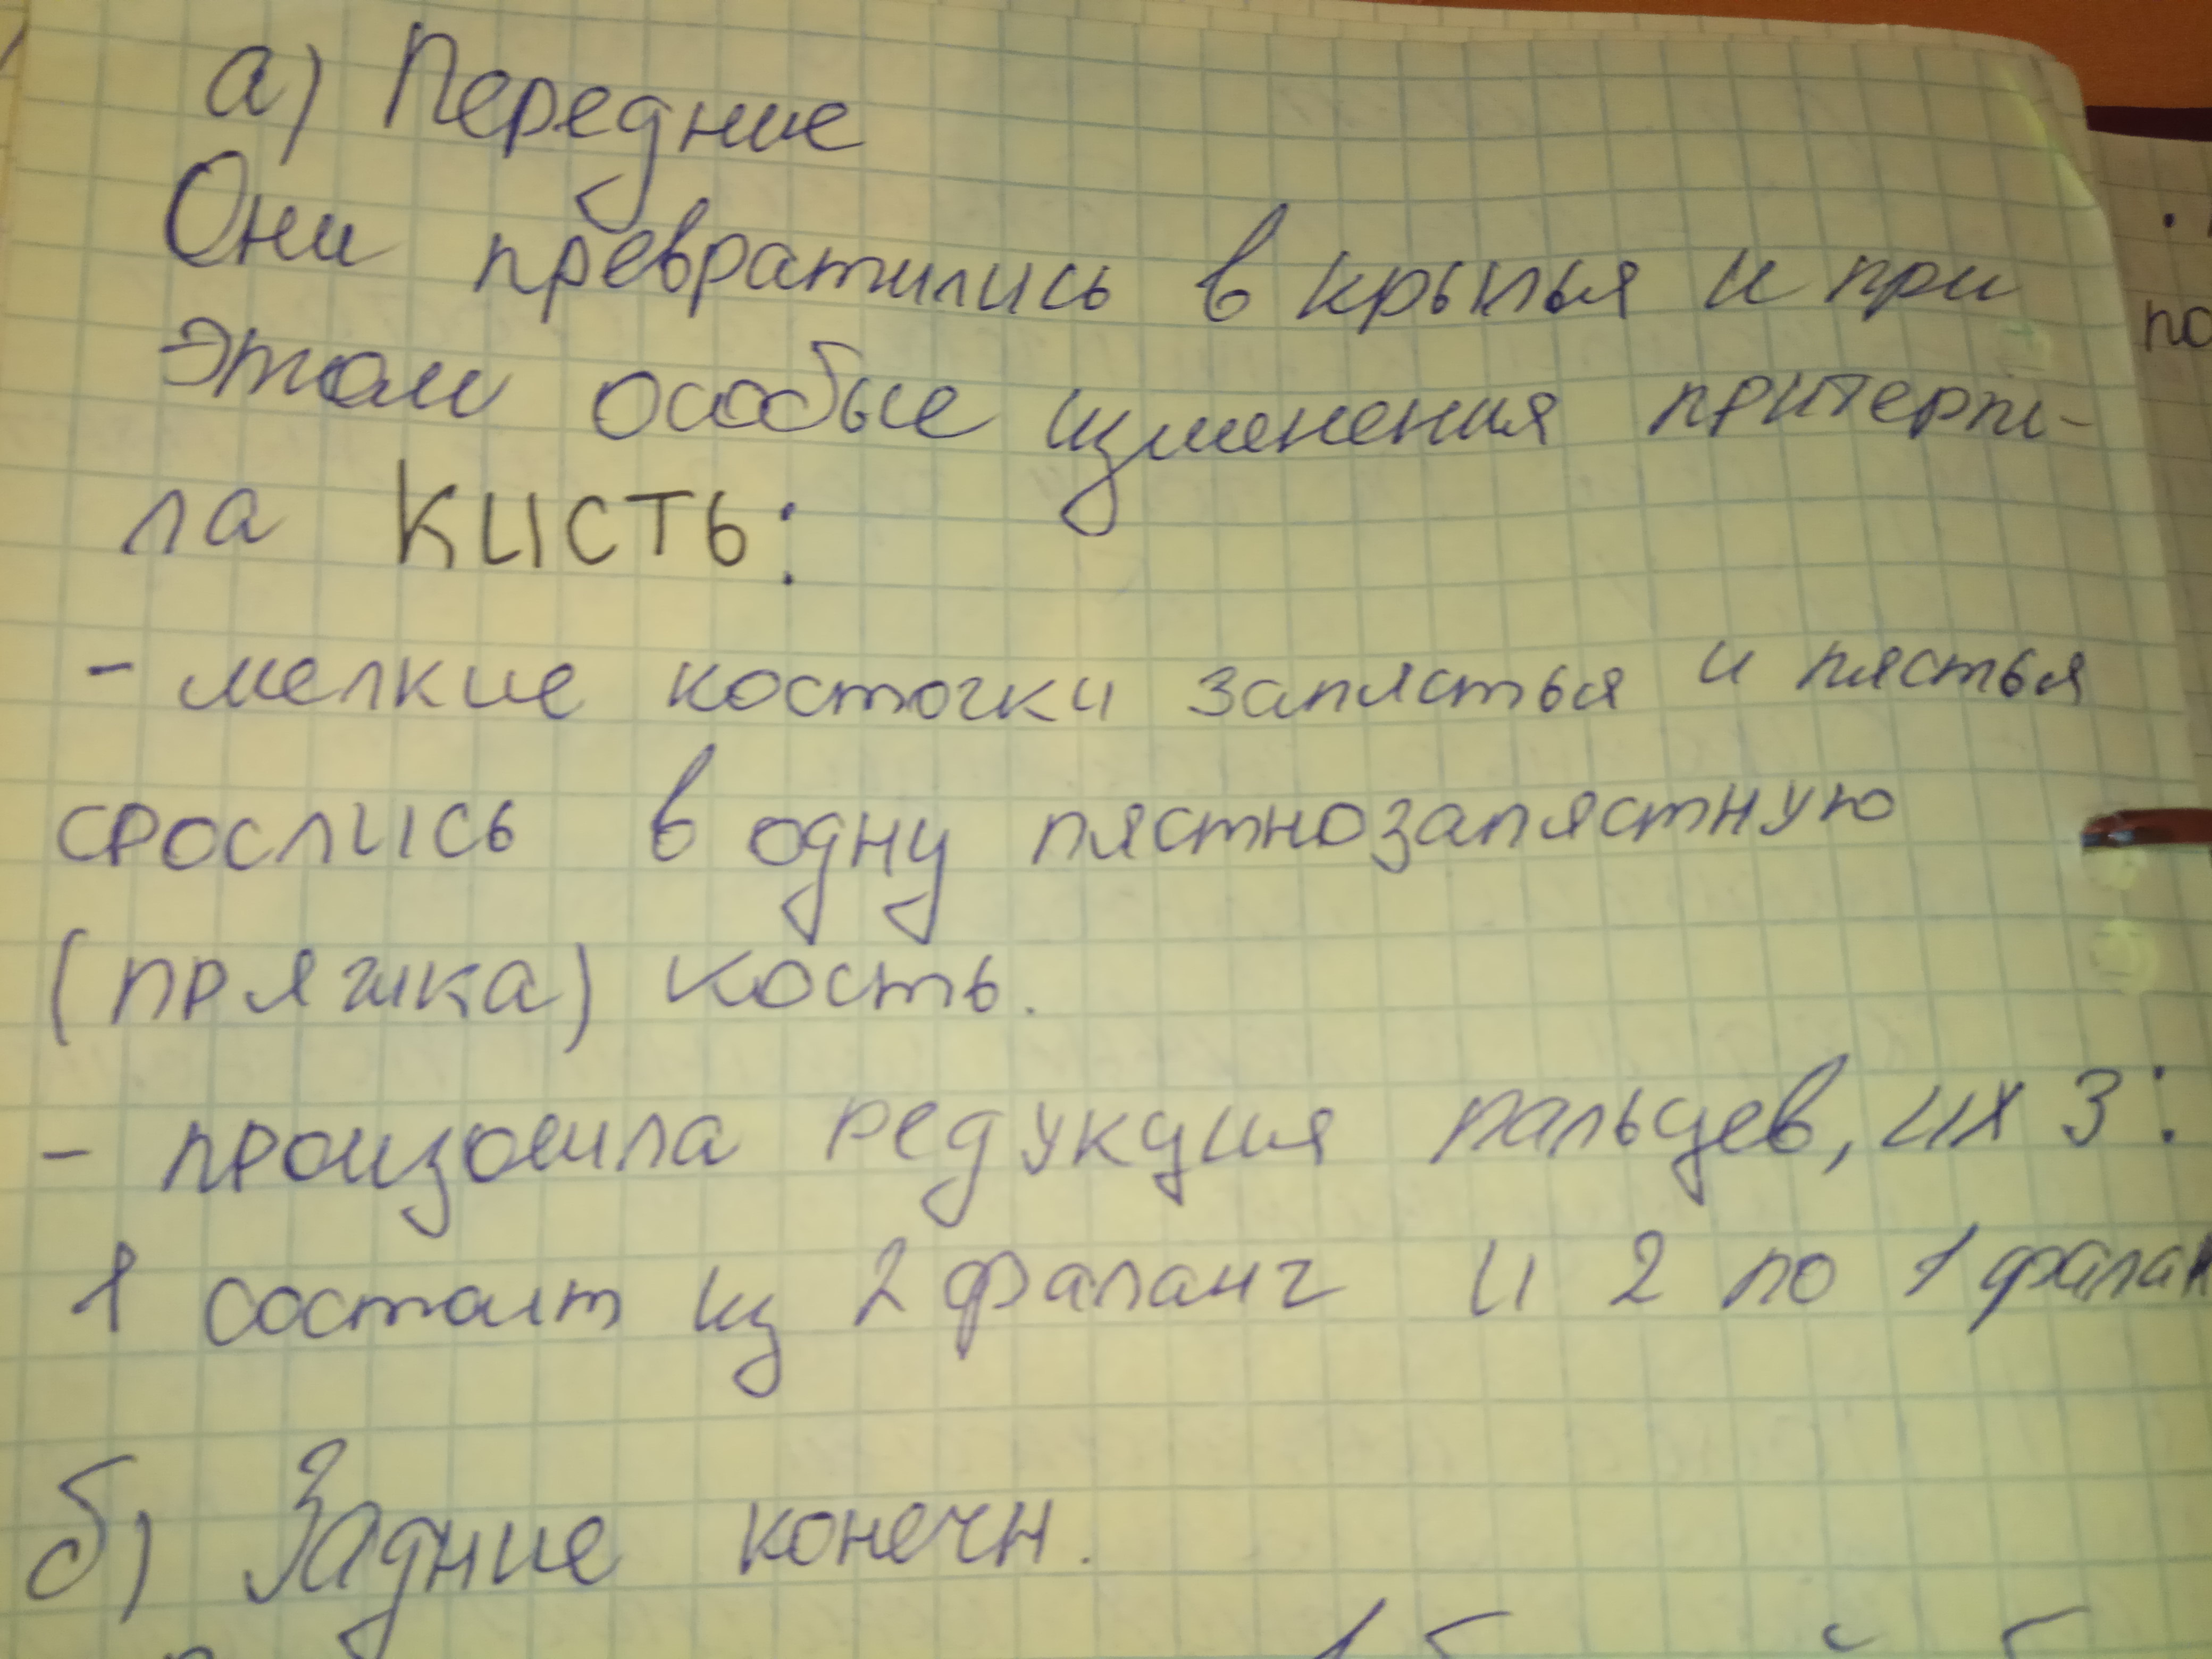 а) Передние
Они превратились в крылья и при
этом особые изменения притерпи-
ла КИСТЬ:
- мелкие косточки запястья и пястья
срослись в одну пястнозапястную
(пряжка) кость.
- произошла редукция пальцев, их 3:
1 состоит из 2 фаланг и 2 по 1 фалан
б) Задние конечн.